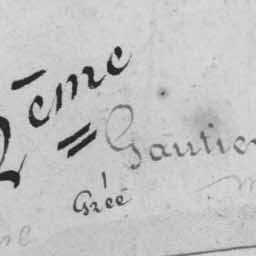 2ème
Gautier
Gréé